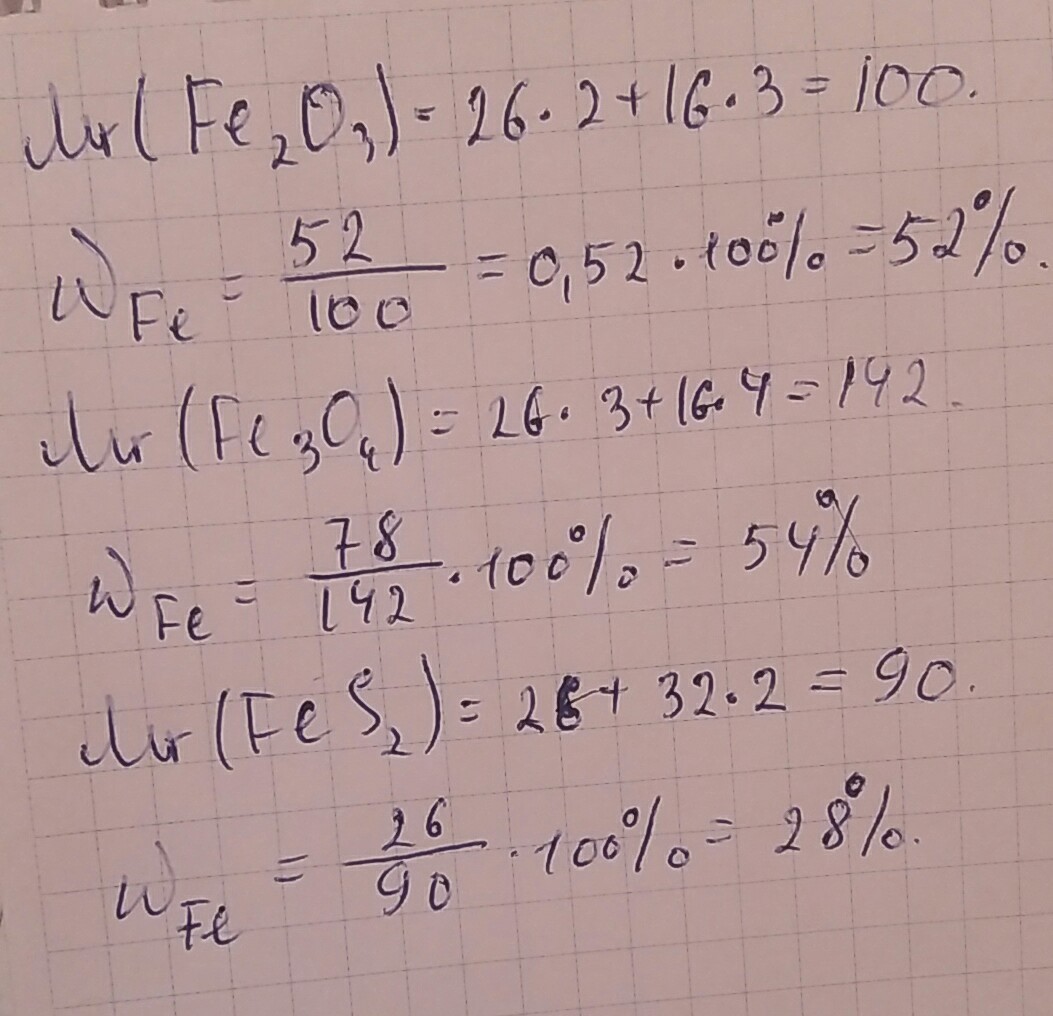 Mr(Fe₂O₃) = 26·2+16·3=100.
W Fe = 52/100 = 0,52·100% =52%.
Mr(Fe₃O₄) = 26·3+16·4=142.
W Fe = 78/142 ·100% = 54%
Mr(FeS₂) = 26+32·2=90.
W Fe = 26/90 ·100% = 28%.